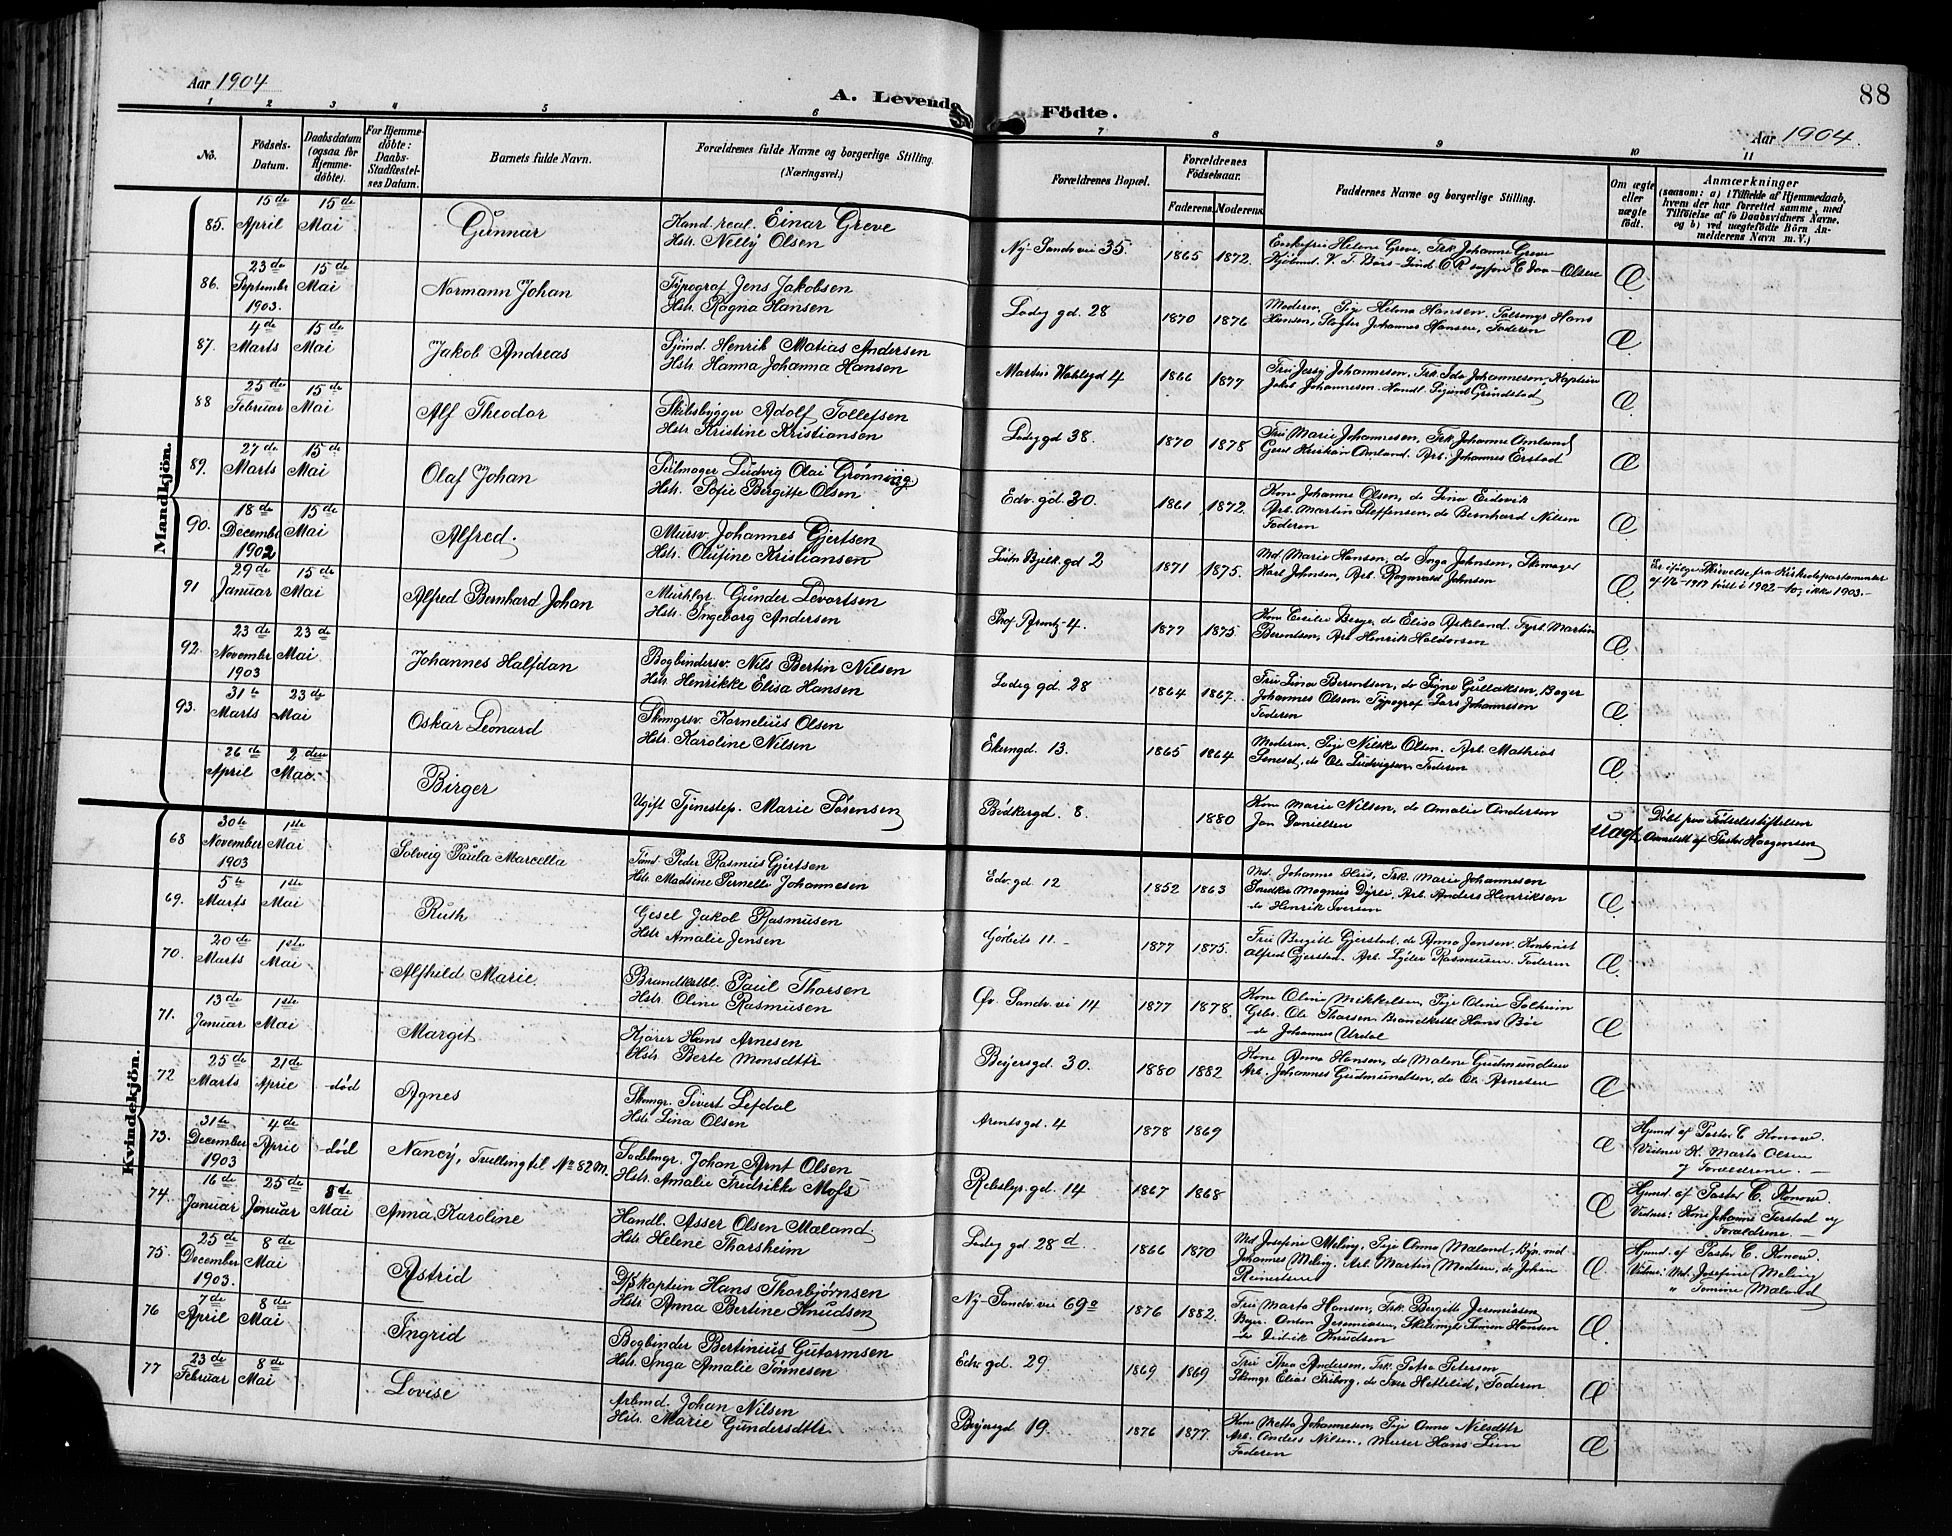 Aar 1904
A. Levende Födte.
88
Aar 1904.
1 2 3 4 5 6 7 8 9 10 11
No.
Födsels-Datum.
Daabsdatum (ogsaa for Hjemmedöbte).
For Hjemmedöbte: Daabs-Stadfæstelses Datum.
Barnets fulde Navn.
Forældrenes fulde Navne og borgerlige Stilling. (Næringsvei.)
Forældrenes Bopæl.
Forældrenes Födselsaar.
Faderens. Moderens.
Faddernes Navne og borgerlige Stilling.
Om ægte eller uægte födt.
Anmærkninger
(saasom: a) i Tilfælde af Hjemmedaab,
hvem der har forrettet samme, med
Tilföielse af to Daabsvidners Navne.
og b) ved uægtefödte Börn An-
melderens Navn m. V.)
Mandkjön.
85. 15de April 15de Mai Gunnar
Hand. real. Einar Greve
Hstr. Nelly Olsen
Ny-Sandsvei 35. 1865 1872.
Enkefru Helene Greve, Frk Johanne Greve
Æ
86. 23de September 1903. 15de Mai Normann Johan
Typograf Jens Jakobsen
Hstr. Ragna Hansen
Lodeg gd. 28 1870 1876
Moderen, Pige Helena Hansen. Hans
Hansen, Johannes Hansen, Faderen
Æ
87. 4de Marts 15de Mai Jakob Andreas
Sjömd. Henrik Matias Andersen
Hstr. Hanna Johanna Hansen
Martin Wahlsgd 4 1866 1877
Fru Jessy Johannesen, Frk Ida Johannesen, Kaptein
Jakob Johannesen. Handl. Sigurd Grindstad
Æ
88 25de Februar 15de Mai Alf Theodor
Skibsbygger Adolf Tollefsen
Hstr Kristine Kristiansen
Lodeg gd 38. 1870 1878
Fru Marie Johannesen, Frk. Johanne Amland
Gesel Kristian Amland. Arb. Johannes Erstad
Æ
89. 27de Marts 15de Mai Olaf Johan
Pølmager Ludvig Olai Grönning
Hstr. Sofie Bergitte Olsen
Edv. gd. 30. 1861 1872.
Kone Johanne Olsen, do Lina Eidevik
Arb. Martin Steffensen, do Bernhard Nilsen
Faderen
Æ
90. 18de December 1902 15de Mai Alfred.
Mursv. Johannes Gjertsen
Hstr. Olufine Kristiansen
Bjelk. gd 2 1871 1875.
Md. Marie Hansen, do Inga Johnsen, Skmager
Karl Johnsen, Arb. Rognvald Johnsen
Æ
Er ifølge Skrivelse fra Kirkedepartementet
af 1/6-1917 født i 1902 - ikke 1903.-
91 29de Januar 15de Mai Alfred Bernhard Johan
Murhlgr. Gunder Levortsen
Hstr. Ingeborg Andersen
Prof. Arentz-4. 1877 1875
Kone Cecilie Berge, do Elisa Askland. Fyrb. Martin
Berentsen, Arb Henrik Haldorsen
Æ
92. 23de November 1903 23de Mai Johannes Halfdan
Bogbindersv. Nils Bertin Nilsen
Hstr. Henrikke Elisa Hansen
Lodeg gd. 28 1864 1867.
Fru Lina Berentsen, do Signe Gullaksen, Bager
Johannes Olsen, Typograf Lars Johannesen
Faderen
Æ
93. 31te Marts 23de Mai Oskar Leonard
Skmgrsv. Kornelius Olsen
Hstr. Karoline Nilsen
Ekrengd. 13. 1865 1864
Moderen, Pige Nilske Olsen. Arb. Mathias
do Ole Ludvigsen, Faderen
Æ
26de April 2den Mai. Birger
Ugift Tjenestep. Marie Sørensen
Bødkergd. 8. 1880
Kone Marie Nilsen, do Amalie Andersen
Jon Danielsen
Uægt.
Döbt paa Fødselsstiftelsen
Anmeldt af Pastor Haagensen
Kvindekjön.
68 30te November 1903 1ste Mai Solveig Paula Marcella
Tømd. Peder Rasmus Gjertsen
Hstr. Madsine Pernelle Johannesen
Edv. gd. 12 1852 1863
Md. Johanne Hus, Frk. Marie Johannesen
Snedker Magnus Dyrli, Arb. Anders Henriksen
do Henrik Iversen
Æ
69. 5te Marts 1ste Mai Ruth
Gesel Jakob Rasmusen
Hstr Amalie Jensen
11 - 1877 1875.
Fru Birgitte Gjerstad, do Anna Jensen, Kontorist
Alfred Gjerstad, Arb. Rasmusen. Faderen
Æ
70. 20de Marts 1ste Mai Alfhild Marie
Brandkstbl. Paul Thorsen
Hstr. Oline Rasmusen
Øv. Sandv. vei 14 1877 1878.
Kone Oline Mikkelsen, Pige Oline Solheim
Gsbr. Ole Thorsen, Brandkstbl Hans Bøe
do Johannes Urdal
Æ
71. 13de Januar 1ste Mai Margit
Kjører Hans Arnesen
Hstr Berte Monsdttr
Beyersgd. 30. 1880 1882
Kone Anna Hansen, do Malene Gudmundsen
Arb. Johannes Gudmundsen, do Ole Arnesen
Æ
72 25de Marts 21de April död Agnes
Skmgr. Sivert Lefdal
Hstr Lina Olsen
Arentsgd. 4 1878 1869
Æ
Hjemd af Pastor C. Konow.
Vidner K. Marta Olsen
og Forældrene. -
73. 31te December 1903 4de April död Nancy, Tvilling til No 82 M.
Sadelmgr. Johan Arnt Olsen
Hstr. Amalie Fredrikke Mofs
Rebslgr. gd. 14 1867 1868
Æ
Hjemd af Pastor C. Konow.
Vidner: Kone Johanne Ferstad og
Forældrene. -
74. 16de Januar 25de Januar 8de Mai Anna Karoline
Handl. Asser Olsen Mæland
Hstr Helene Thorsheim
Lodeg gd 28 d. 1866 1870
Md Josefine Meling, Pige Anna Mæland, Byn. md
Johannes Meling, Arb. Martin Madsen, do Johan
Reinertsen
Æ
Hjemd. af Pastor C. Konow
Vidner: Md. Josefine Meling
" Tomine Mæland
75. 25de December 1903. 8de Mai Astrid
D/S kaptein Hans Thorbjørnsen
Hstr Anna Bertine Knudsen
Ny-Sandv. vei 69a 1876 1882.
Fru Marta Hansen, Frk. Bergitte Jeremiasen
Bager Anton Jeremiasen, Simon Hansen
do Didrik Knudsen
Æ
76 7de April 8de Mai Ingrid
Bogbinder Bertinius Gutormsen
Hstr. Inga Amalie Tönnesen
Edv gd. 29 1869 1869
Fru Thea Andersen, Frk. Petra Petersen
Skmgr Elias Friborg, do Iver Hetlelid, Faderen
Æ
77 23de Februar 8de Mai Lovise
Arbmd. Johan Nilsen
Hstr. Marie Gundersdttr
Beyersgd 19. 1876 1877.
Kone Metta Johannesen, Pige Anna Nilsdttr
Arb. Anders Nilsen, Murer Hans Lien
Faderen
Æ